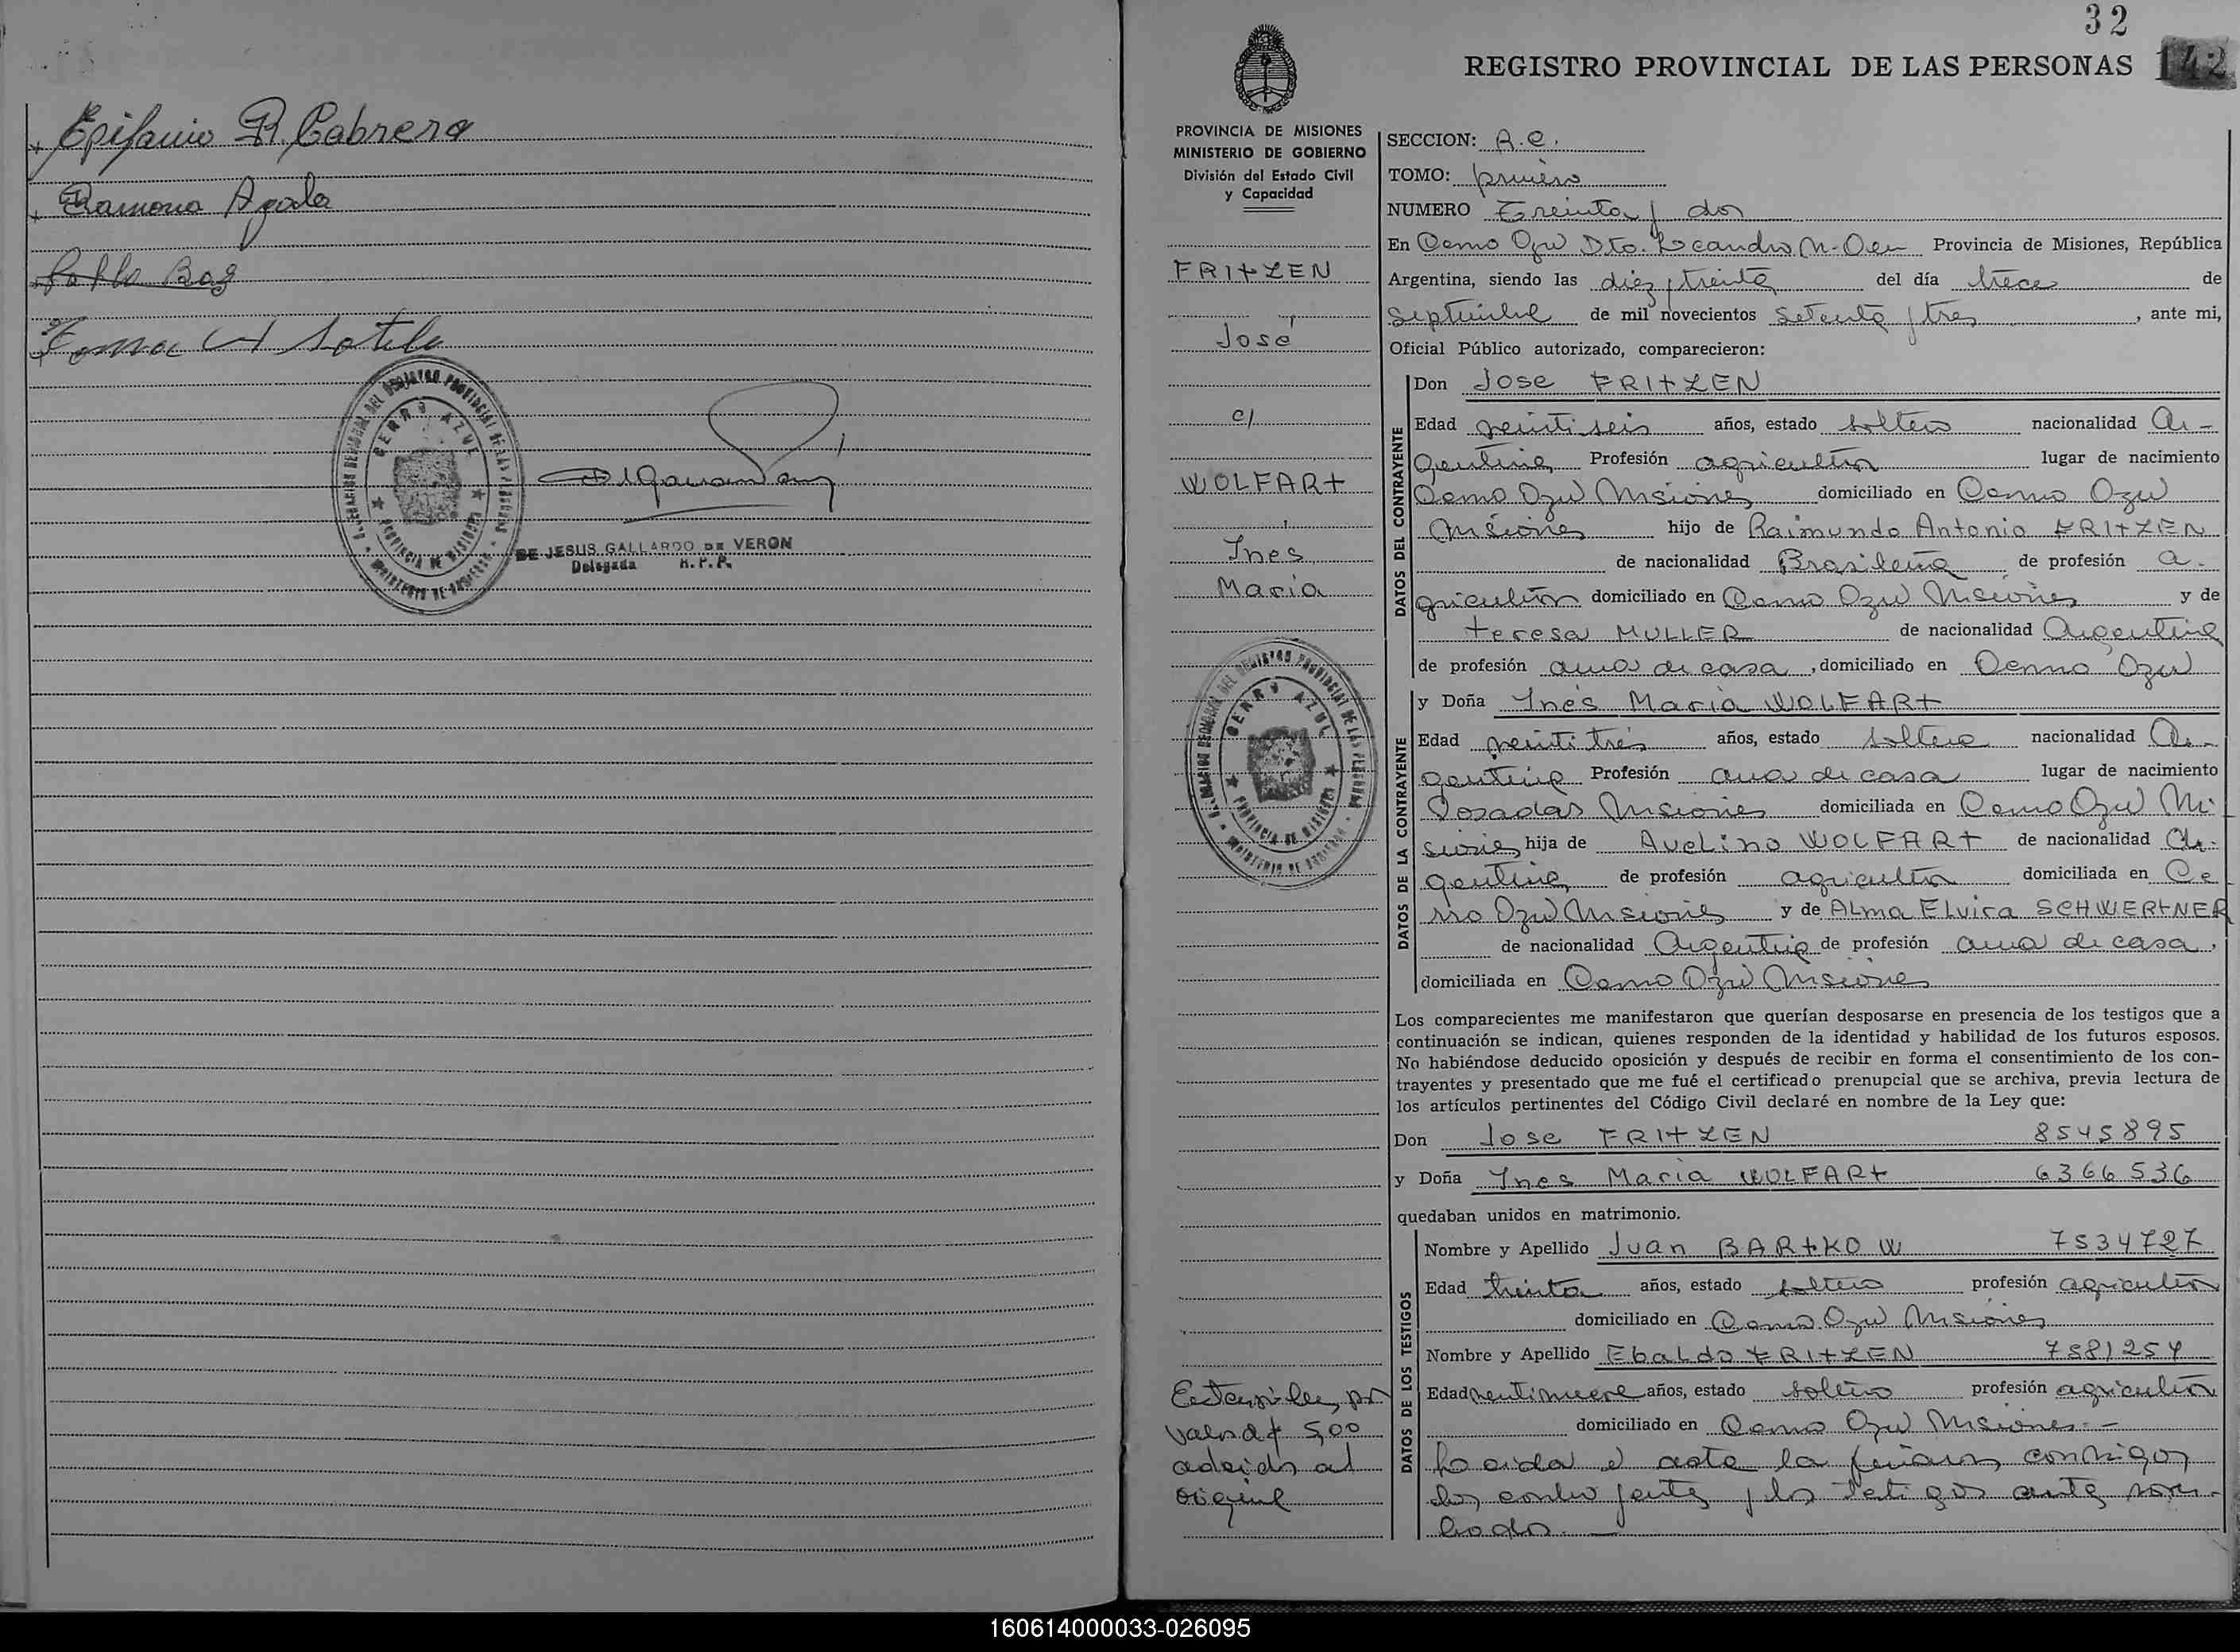 Epifanio R. Cabrera
Ramona Ayala
Pablo Bog
Sotelo
DELEGACION SECCIONAL DEL REGISTRO PROVINCIAL DE LAS PERSONAS
CERRO AZUL
PROVINCIA DE MISIONES
MINISTERIO DE GOBIERNO
DE JESUS GALLARDO DE VERON
Delegada R. P. P.
32
REGISTRO PROVINCIAL DE LAS PERSONAS 142
PROVINCIA DE MISIONES
MINISTERIO DE GOBIERNO
División del Estado Civil
y Capacidad
FRITZEN
José
c/
WOLFART
Ines
Maria
DELEGACION SECCIONAL DEL REGISTRO PROVINCIAL DE LAS PERSONAS
CERRO AZUL
PROVINCIA DE MISIONES
MINISTERIO DE GOBIERNO
Estampilla por
valor de $ 5,00
adeido al
original
SECCION: A.C.
TOMO: primero
NUMERO Treinta y dos
En Cerro Azul Dto. Leandro N. Alem Provincia de Misiones, República
Argentina, siendo las diez y treinta del día trece de
Septiembre de mil novecientos Setenta y tres, ante mi,
Oficial Público autorizado, comparecieron:
DATOS DEL CONTRAYENTE
Don Jose FRITZEN
Edad veintiseis años, estado soltero nacionalidad Ar-
gentina Profesión agricultor lugar de nacimiento
Cerro Azul Misiones domiciliado en Cerro Azul
Misiones hijo de Raimundo Antonio FRITZEN
de nacionalidad Brasileña de profesión a-
gricultor domiciliado en Cerro Azul Misiones y de
Teresa MULLER de nacionalidad Argentina
de profesión ama de casa, domiciliado en Cerro Azul
DATOS DE LA CONTRAYENTE
y Doña Inés Maria WOLFART
Edad veinti trés años, estado soltera nacionalidad Ar-
gentina Profesión ama de casa lugar de nacimiento
Posadas Misiones domiciliada en Cerro Azul Mi-
siones hija de Avelino WOLFART de nacionalidad Ar-
gentina de profesión agricultor domiciliada en Ce-
rro Azul Misiones y de Alma Elvira SCHWERTNER
de nacionalidad Argentina de profesión ama de casa,
domiciliada en Cerro Azul Misiones
Los comparecientes me manifestaron que querían desposarse en presencia de los testigos que a
continuación se indican, quienes responden de la identidad y habilidad de los futuros esposos.
No habiéndose deducido oposición y después de recibir en forma el consentimiento de los con-
trayentes y presentado que me fué el certificado prenupcial que se archiva, previa lectura de
los artículos pertinentes del Código Civil declaré en nombre de la Ley que:
Don Jose FRITZEN 8545895
y Doña Ines Maria WOLFART 6366536
quedaban unidos en matrimonio.
DATOS DE LOS TESTIGOS
Nombre y Apellido Juan BARTKOW 7534727
Edad treinta años, estado soltero profesión agricultor
domiciliado en Cerro Azul Misiones
Nombre y Apellido Ebaldo FRITZEN 7581254
Edad veintinueve años, estado soltero profesión agricultor
domiciliado en Cerro Azul Misiones.-
Leida el acta la firman conmigo
los contrayentes y los testigos antes nom-
brados.
160614000033-026095